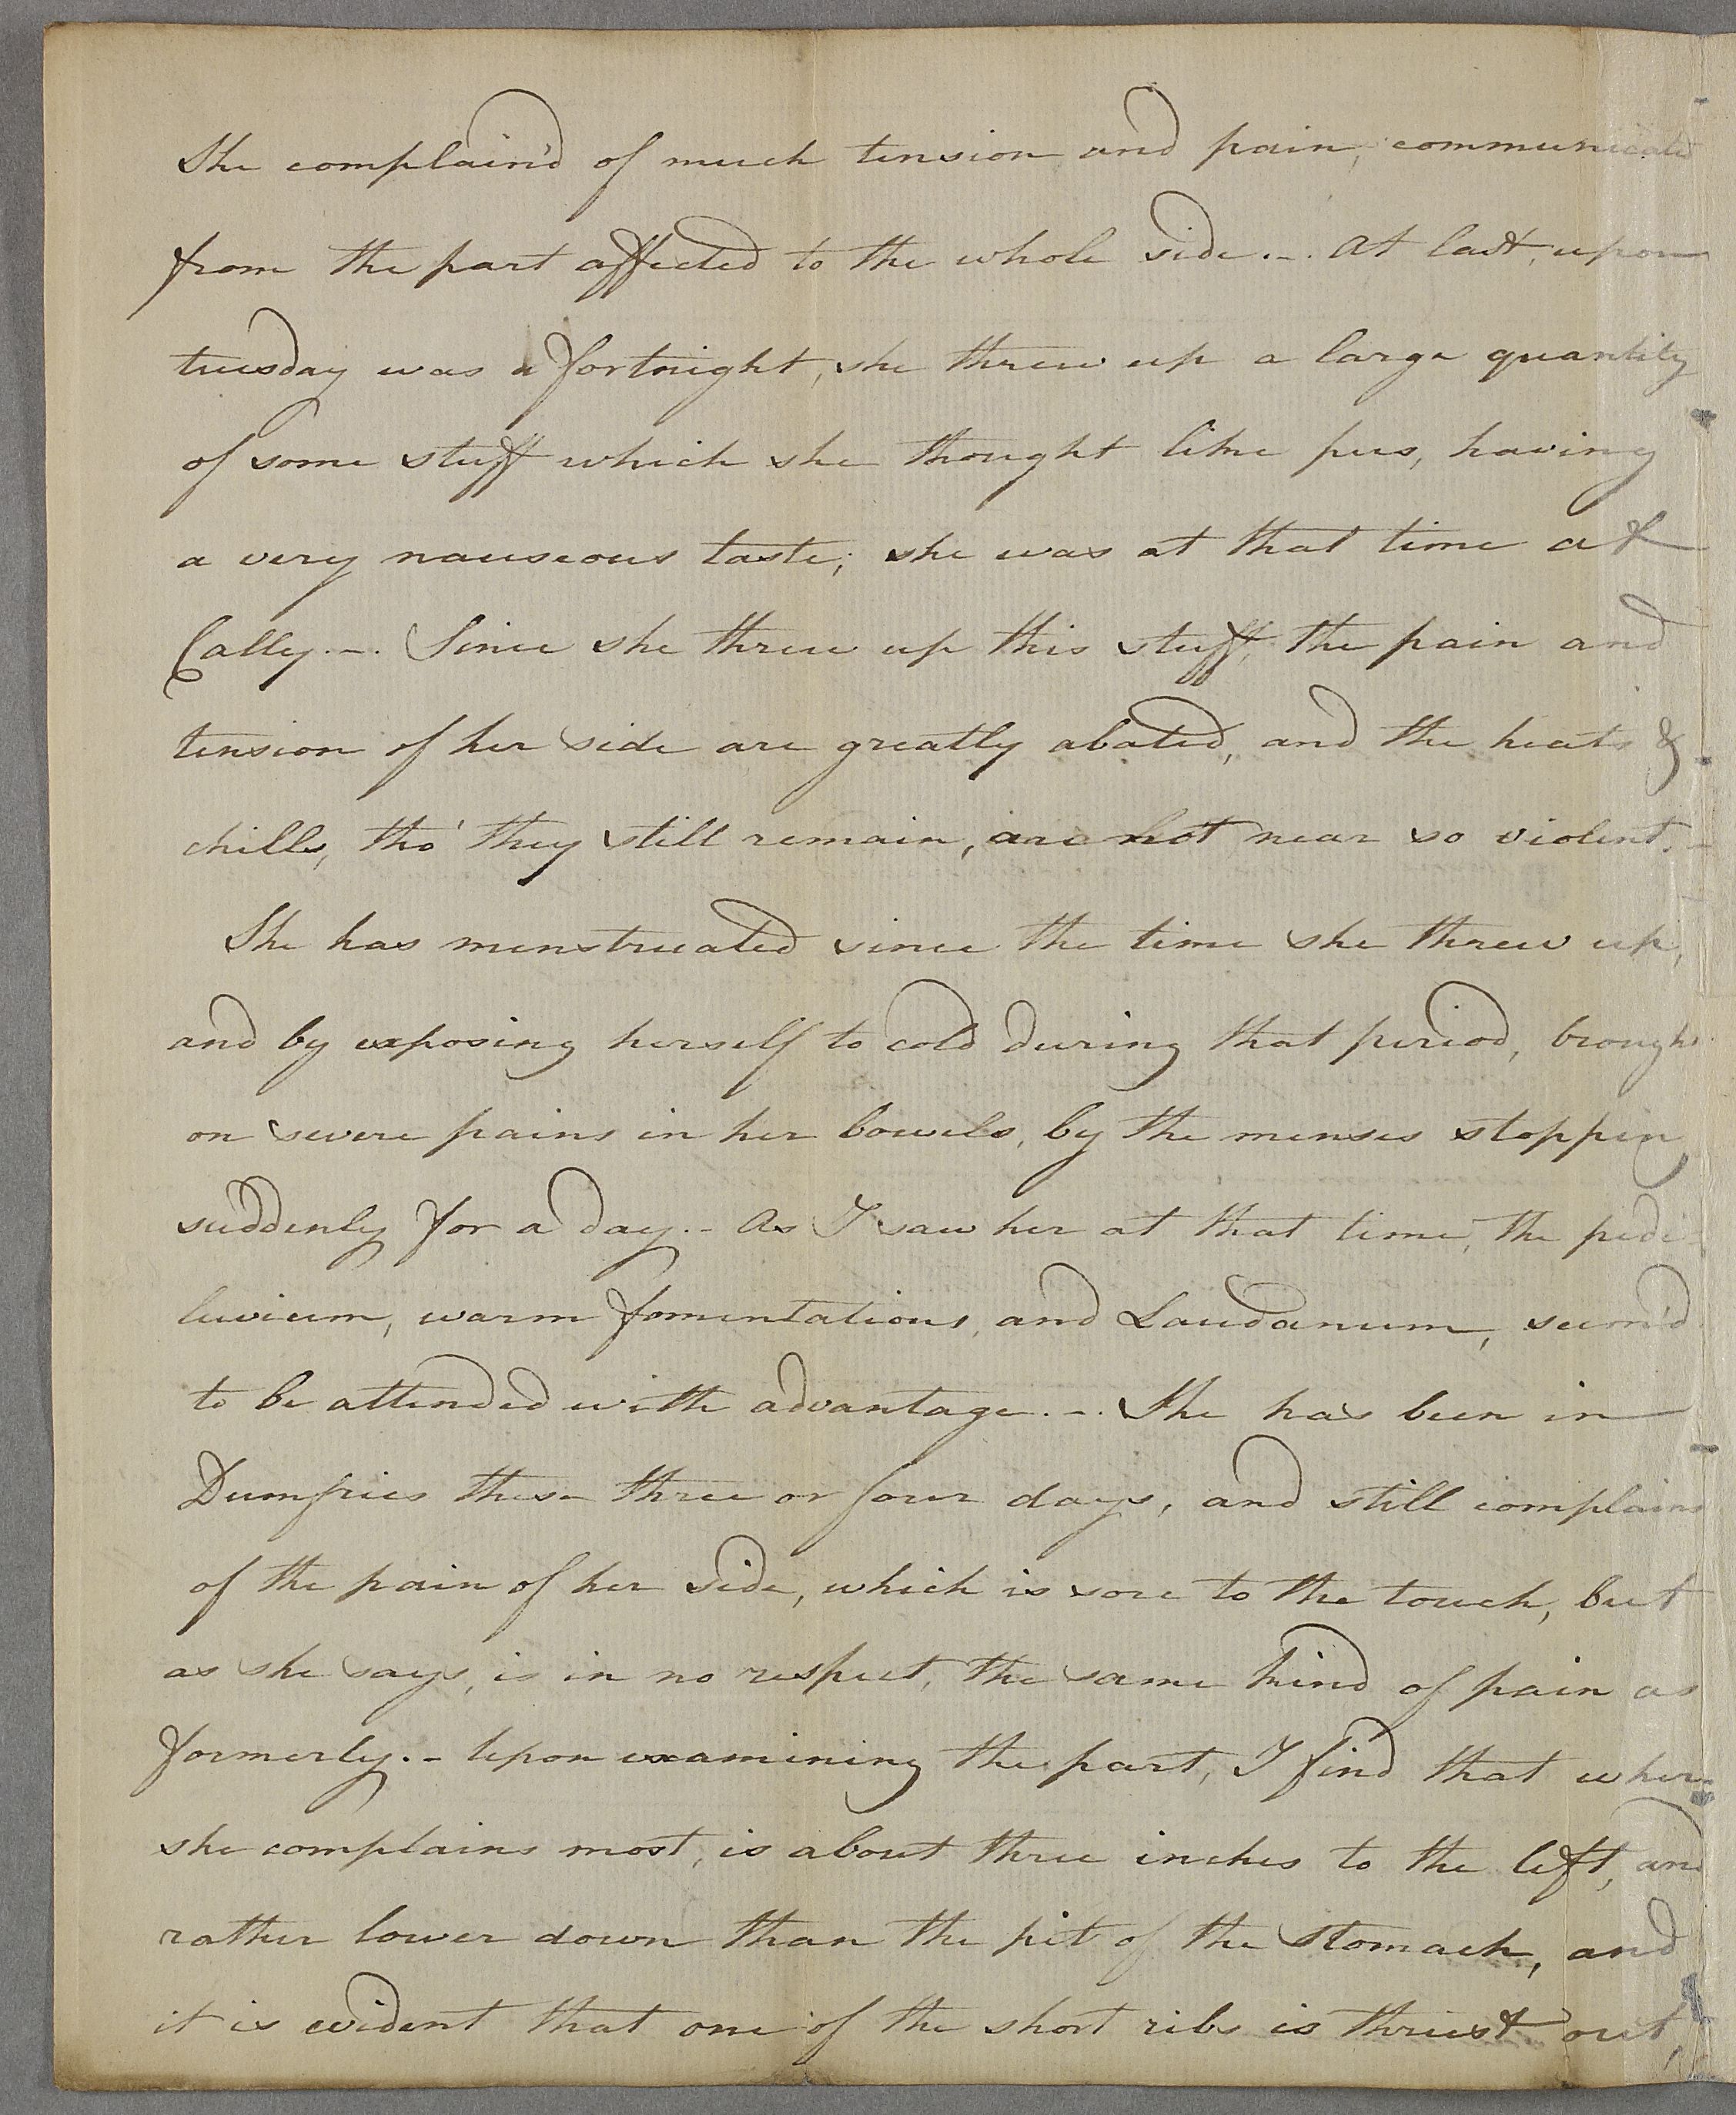 She complain'd of much tension and pain, communicated
from the part affected to the whole side.-. At last, upon
tuesday was a fortnight, she threw up a large quantity
of some stuff which she thought like pus, having
a very nauseous taste; she was at that time at
Cally.-. Since she threw up this stuff, the pain and
tension of her side are greatly abated, and the heats &
chills, tho' they still remain, are not near so violent.-
She has menstruated since the time she threw up,
and by exposing herself to cold during that period, brought
on severe pains in her bowels, by the menses stopping
suddenly for a day.- As I saw her at that time, the pedi-
luvium, warm fomentations, and Laudanum, seem'd
to be attended with advantage.-. She has been in
Dumfries these three or four days, and still complains
of the pain of her side, which is sore to the touch, but
as she says, is in no respect, the same kind of pain as
formerly.- Upon examining the part, I find that where
she complains most, is about three inches to the left, and
rather lower down than the pit of the stomach, and
it is evident that one of the short ribs is thrust out,